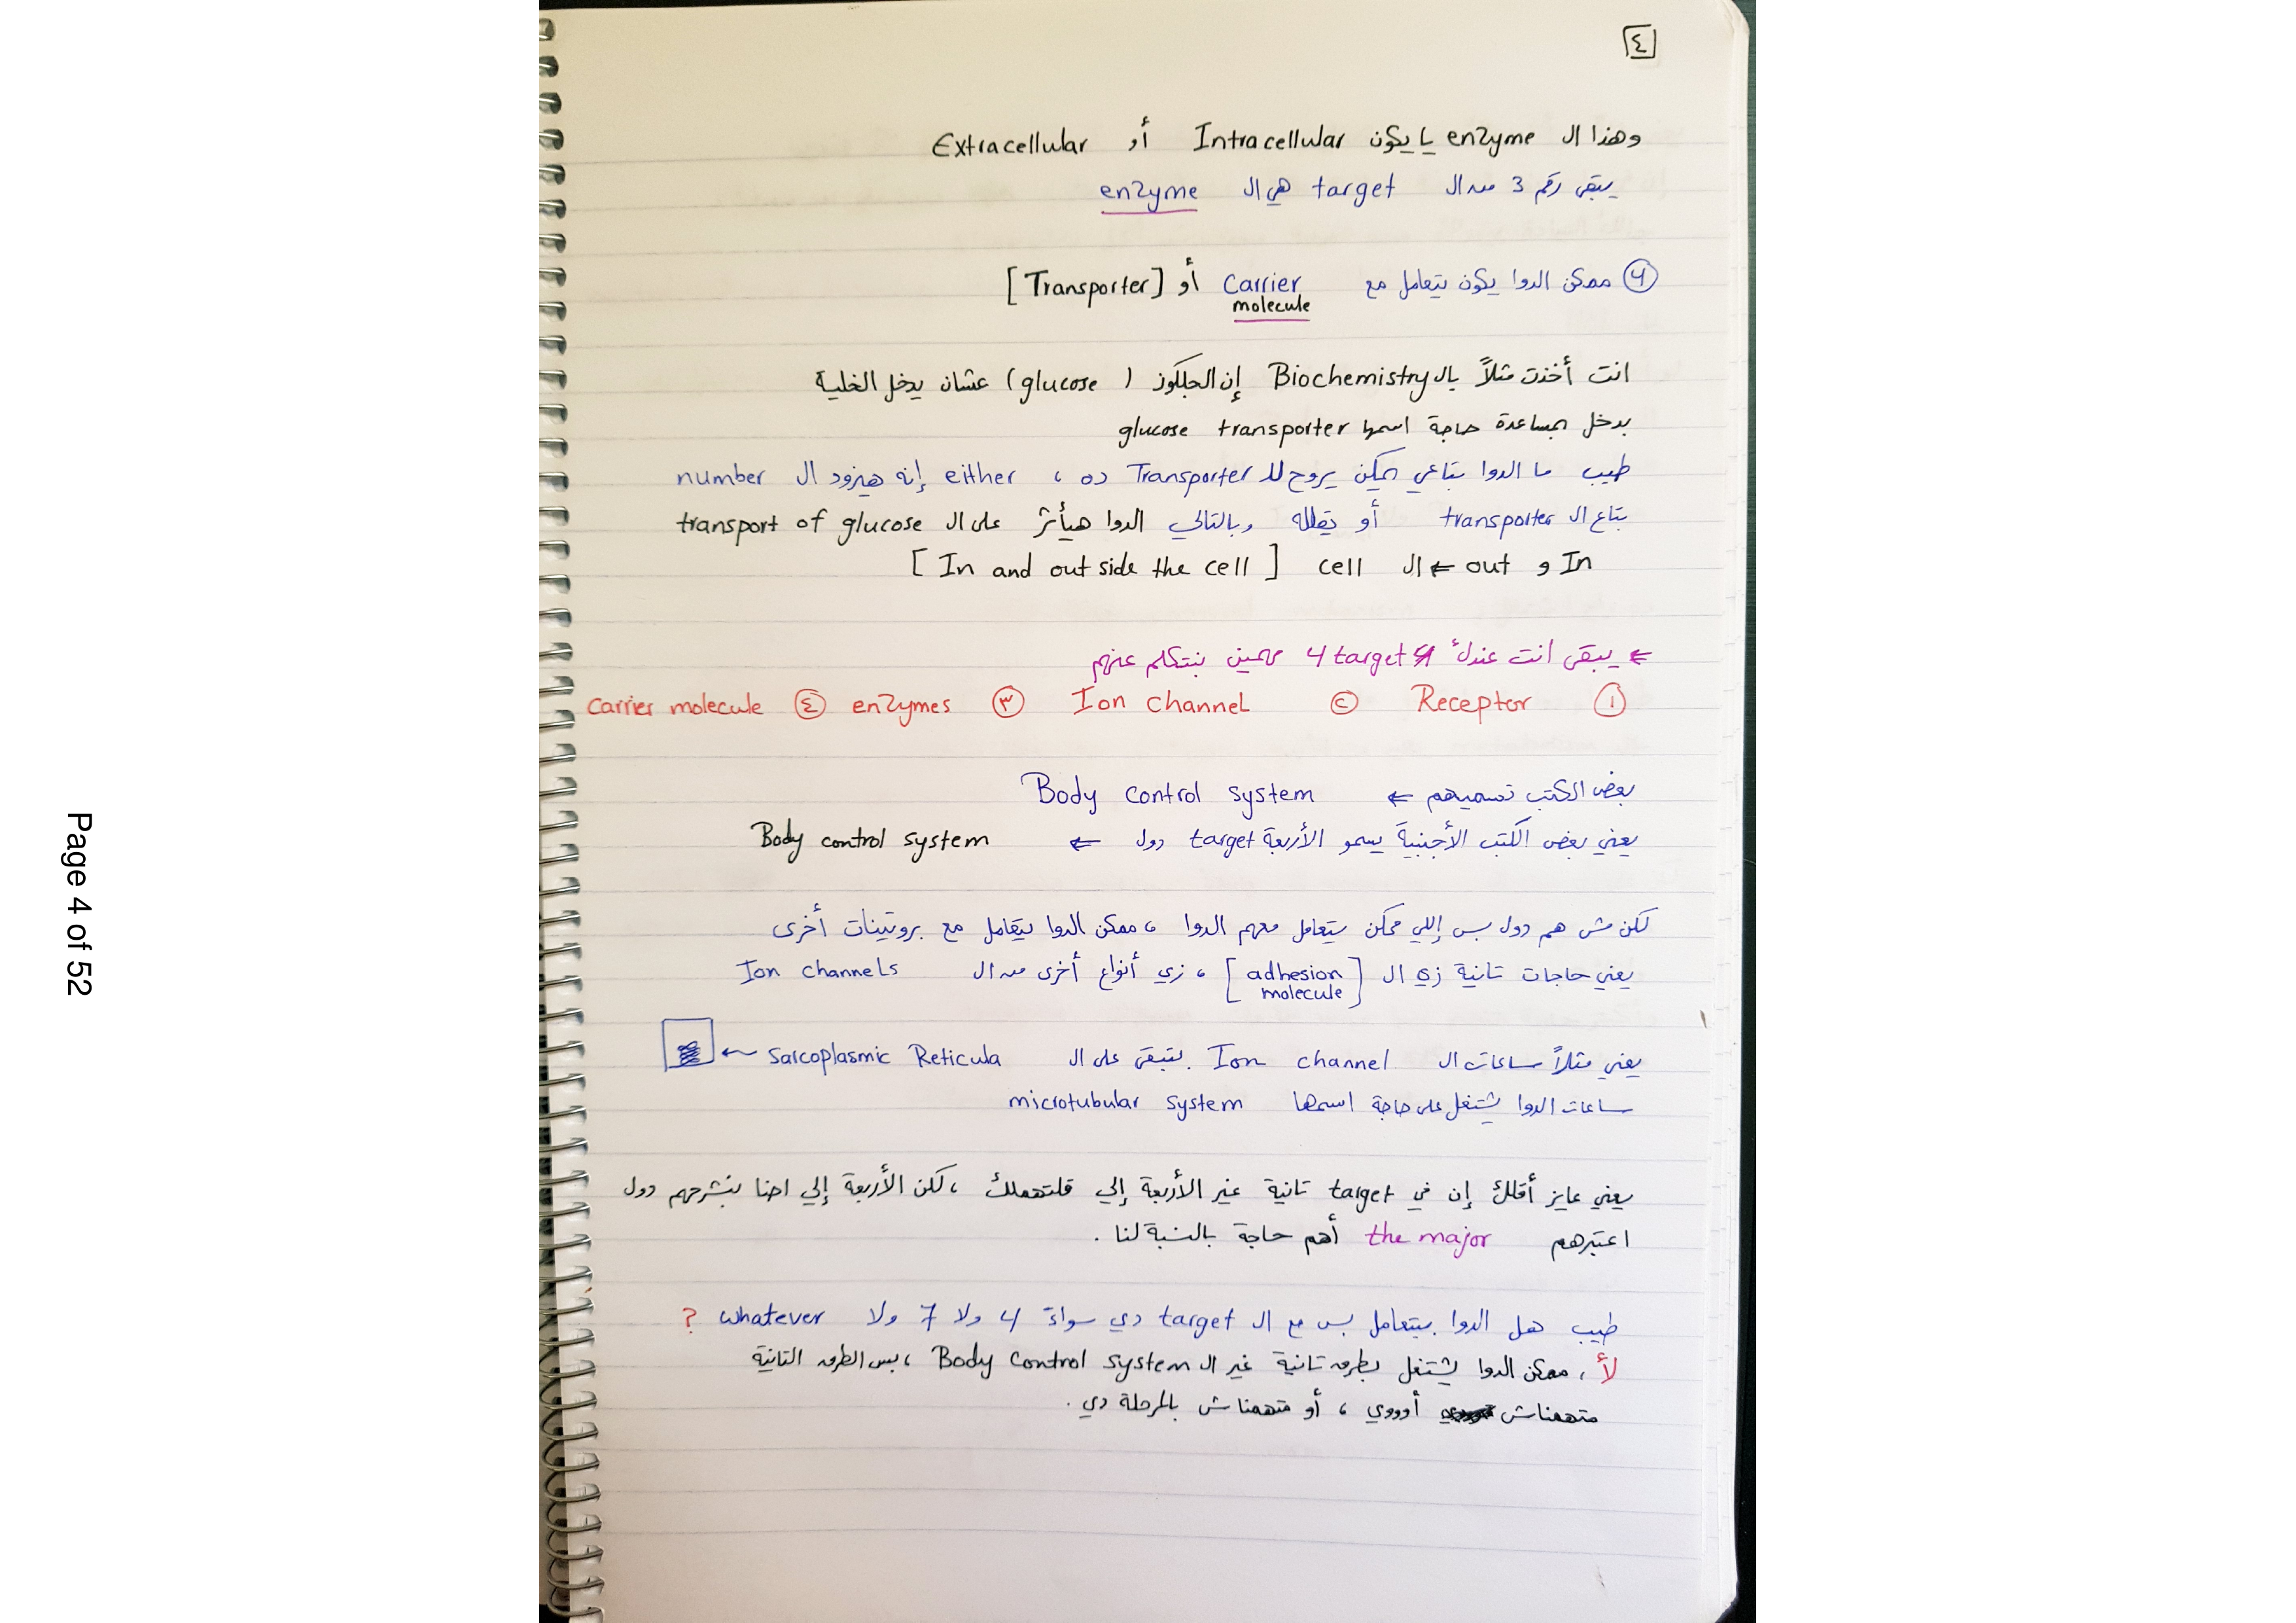 ٤
وهذا ال enzyme يا يكون Intracellular أو Extracellular
يبقى رقم 3 من ال target هي ال enzyme
④ ممكن الدوا يكون يتعامل مع Carrier molecule أو [Transporter]
انت أخذت مثلاً بال Biochemistry إن الجلكوز (glucose) عشان يدخل الخلية
بدخل بمساعدة حاجة اسمها glucose transporter
طيب ما الدوا بتاعي يمكن يروح لل Transporter ده ، either إنه هيزود ال number
بتاع ال transporter أو يقلله وبالتالي الدوا هيأثر على ال transport of glucose
In و out ⇐ ال cell [In and out side the cell]
⇐ يبقى انت عندك 4 target مهمين بنتكلم عنهم
① Receptor ② Ion channel ③ enzymes ④ carrier molecule
بعض الكتب تسميهم ⇐ Body control system
يعني بعض الكتب الأجنبية يسمو الأربعة target دول ⇐ Body control system
لكن مش هم دول بس إللي ممكن يتعامل معهم الدوا ، ممكن الدوا يتعامل مع بروتينات أخرى
يعني حاجات تانية زي ال [adhesion molecule] ، زي أنواع أخرى من ال Ion channels
يعني مثلاً ساعات ال Ion channel بتبقى على ال Sarcoplasmic Reticula ←
ساعات الدوا يشتغل على حاجة اسمها microtubular system
يعني عايز أقلك إن في target تانية غير الأربعة إلي قلتهملك ، لكن الأربعة إلي احنا بنشرحهم دول
اعتبرهم the major أهم حاجة بالنسبة لنا .
طيب هل الدوا بيتعامل بس مع ال target دي سواءً 4 ولا 7 ولا whatever ?
لأ ، ممكن الدوا يشتغل بطرق تانية غير ال Body control system ، بس الطرق التانية
متهمناش أوووي ، أو متهمناش بالمرحلة دي .
Page 4 of 52